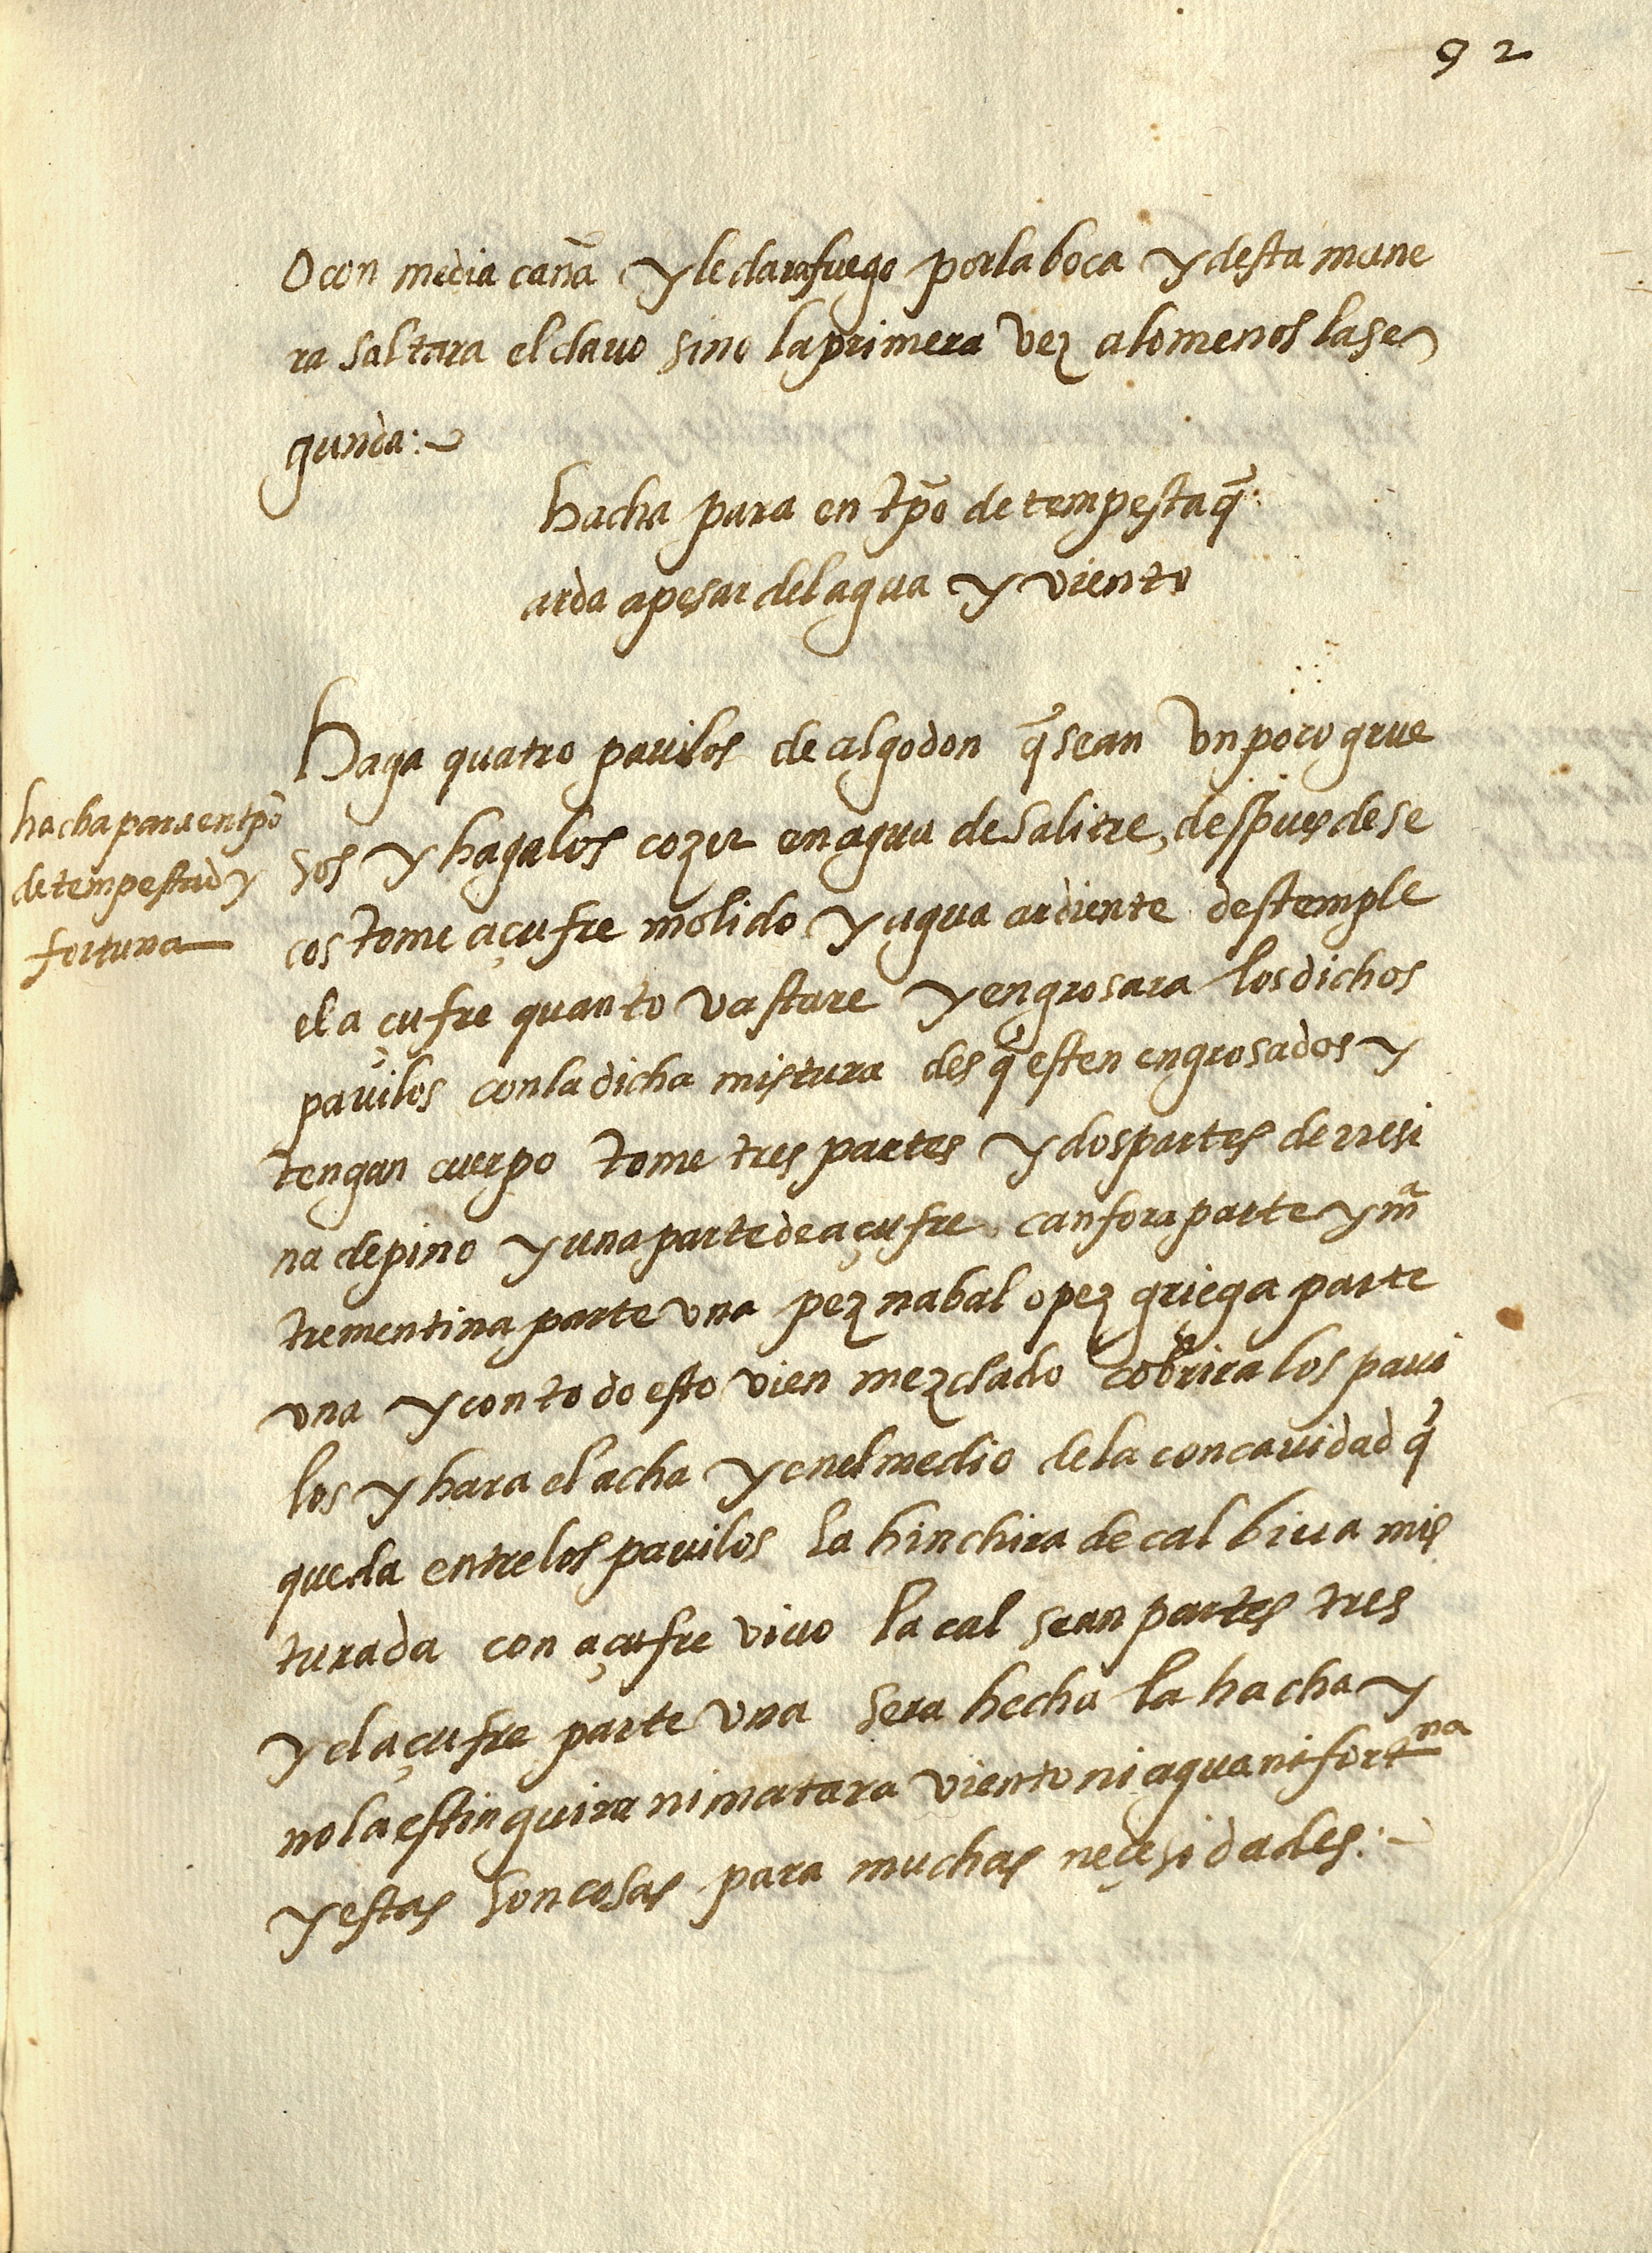 92
O con media caña y le dara fuego por la boca y desta mane
ra saltara el clauo sino la primera vez alomenos la se
gunda:~
hacha para en tp̃o de tempesta q̃
arda apesar del agua y viento
Haga quatro pauilos de algodon q̃ sean vn poco grue
sos y hagalos cozer en agua de salitre, despues de se
cos tome açufre molido y agua ardiente destemple
el açufre quanto vastare y engrosara los dichos
pauilos con la dicha mistura des q̃ esten engrosados y
tengan cuerpo tome tres partes y dos partes de rresi
na de pino y una parte de açufre canfora parte y mᵃ
trementina parte vna pez nabal o pez griega parte
vna y con todo esto vien mezclado cobrira los paui
los y hara el acha y en el medio de la concauidad q̃
queda entre los pauilos la hinchira de cal biua mis
turada con açufre viuo la cal sean partes tres
y el açufre parte vna sera hecha la hacha y
no la estinguira ni matara viento ni agua ni fortⁿᵃ
y estas son cosas para muchas neçesidades:~
hacha para en tp̃o
de tempestad y
fortuna